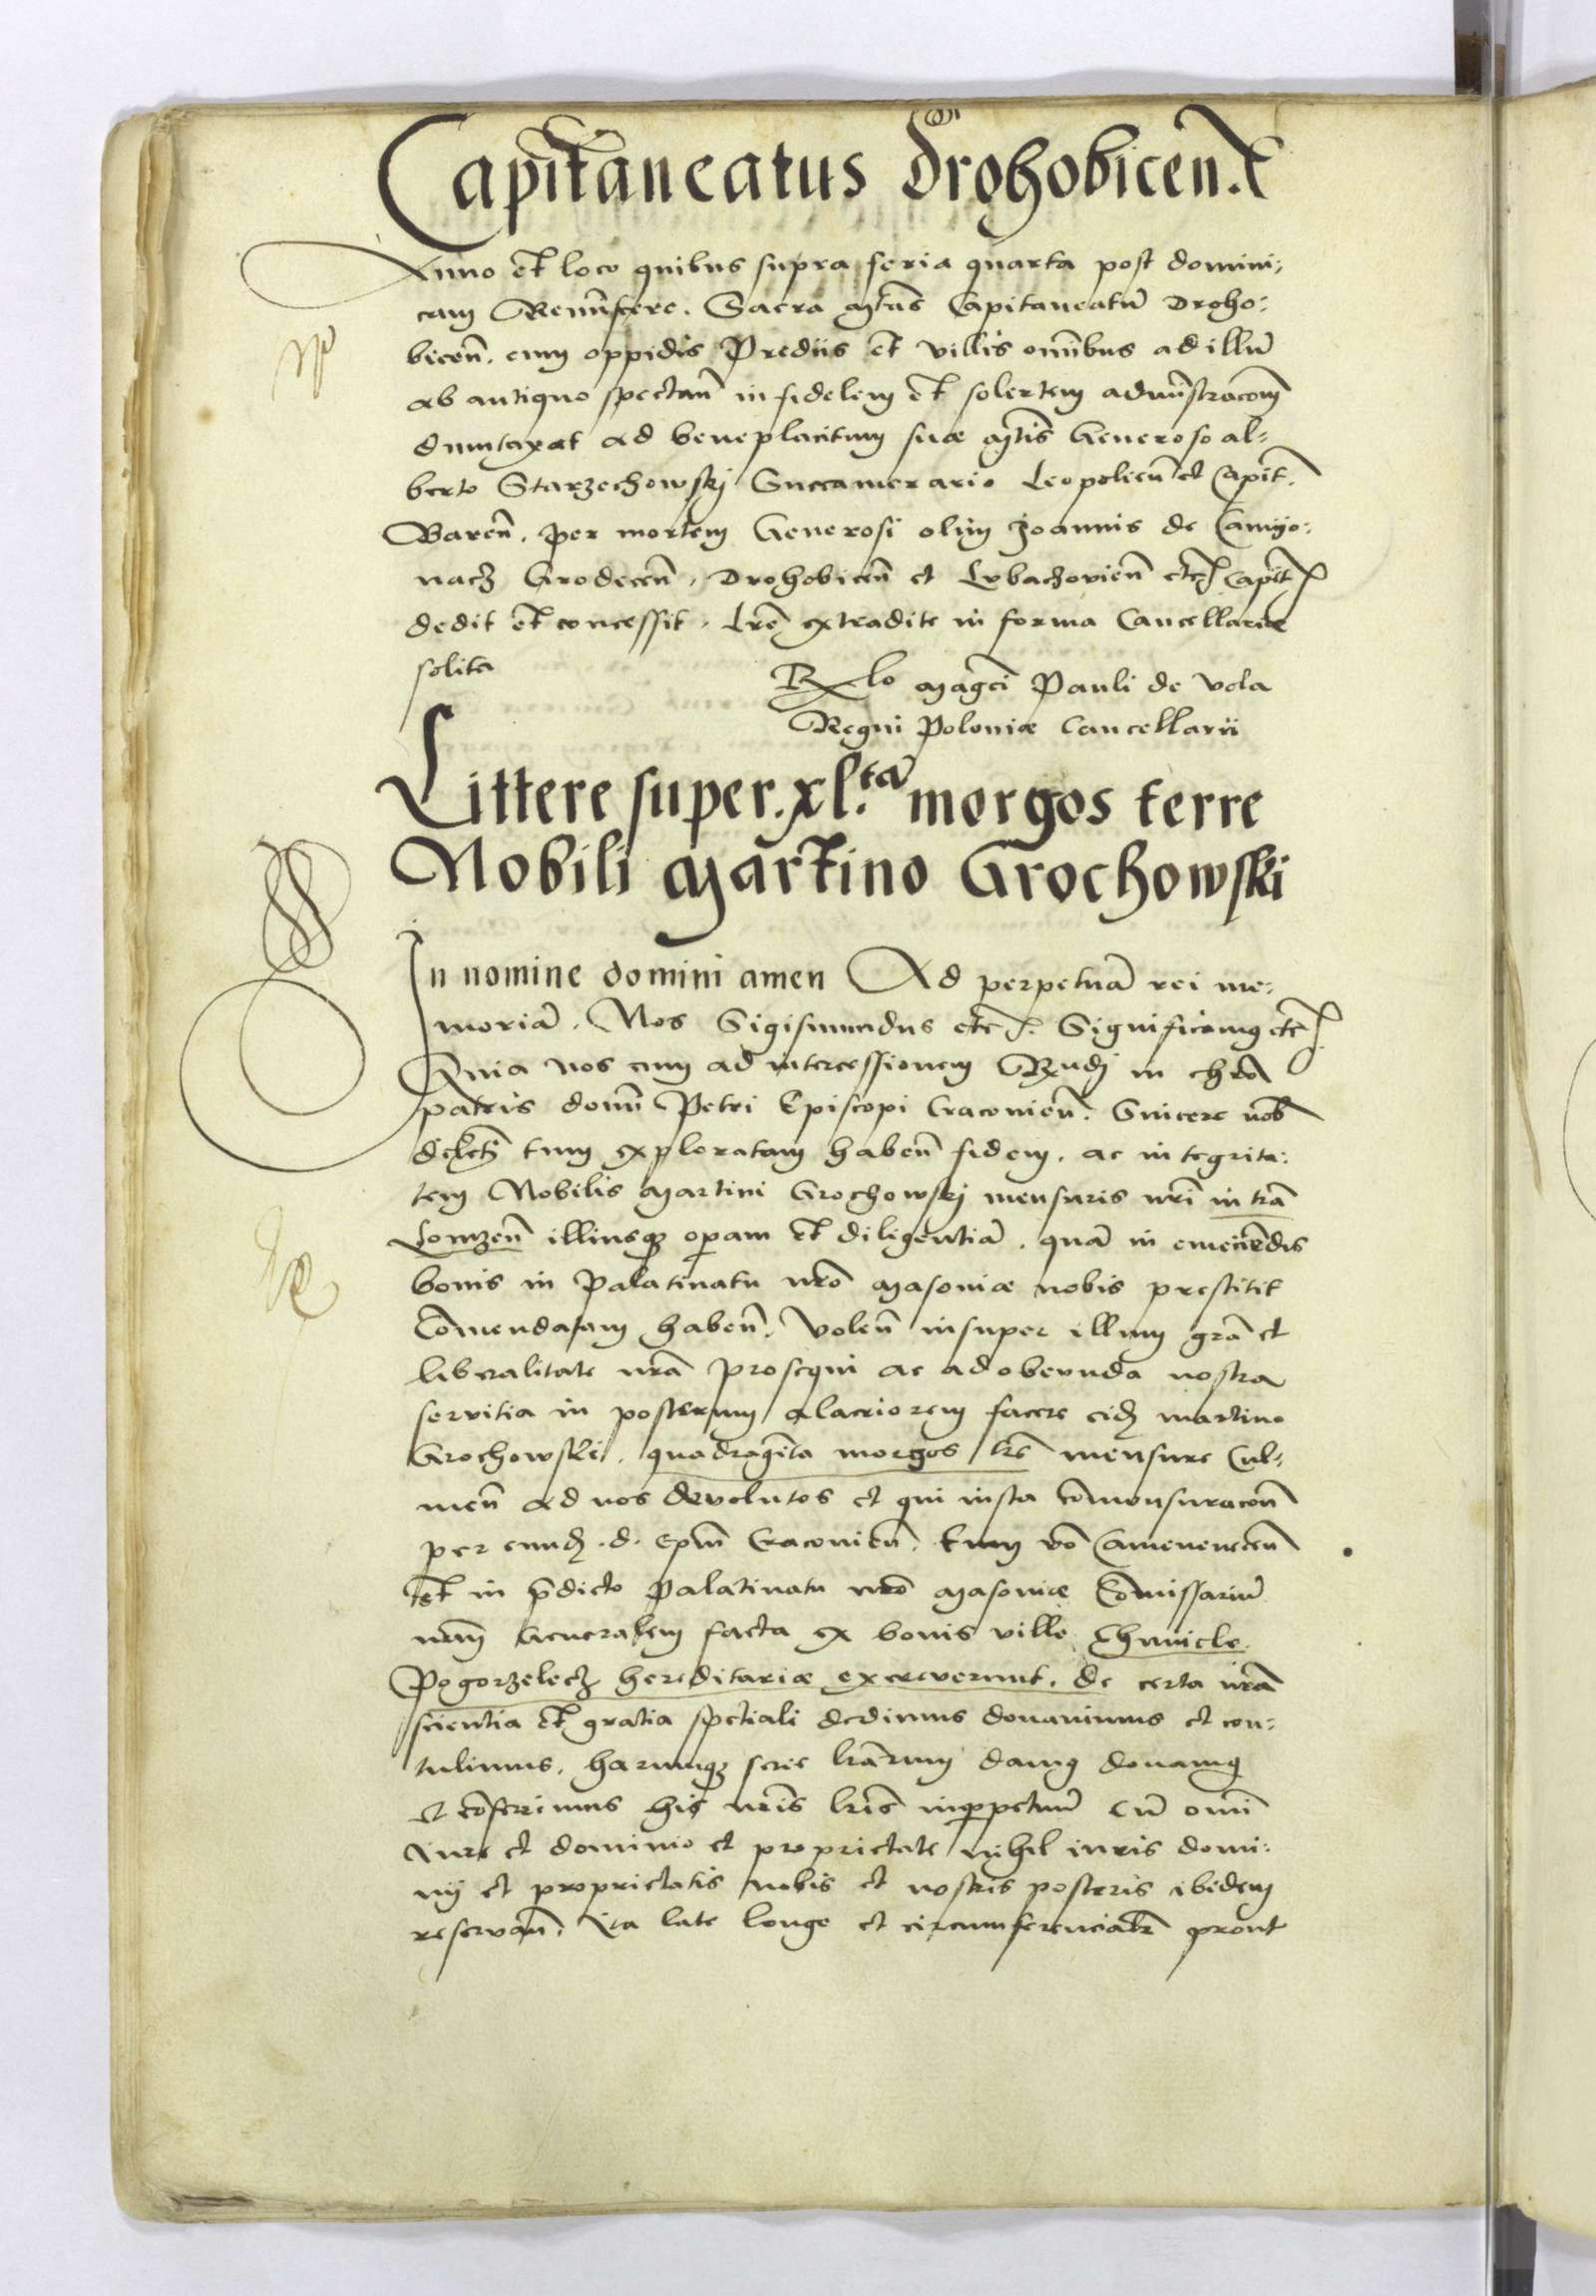 Capitaneatus Drohobicen.
Anno et loco quibus supra feria quarta post domini:
cam Reminiscere. Sacra Mtas Capitaneatū Droho:
bicen̄. cum oppidis Prediis et villis omībus ad illū
ab antiquo spectan̄ in fidelem et solertem admīstracōm
dumtaxat ad beneplacitum suæ Mtis Generoso al-
berto Starzechowskj Succamerario Leopolien̄ et Capit.
Baren̄. per mortem Generosi olim Joannis de Camyo:
nacz Grodecen̄, Drohobicen̄ et Lvbaczovien̄ etc Capit
dedit et concessit. Lrē extradite in forma Cancellariæ
solita
Rlo Magci Pauli de Vola
Regni Poloniæ Cancellarii
Littere super .xl.ta morgos terre
Nobili Martino Grochowski
In nomine domini amen Ad perpetuā rei me:
moriā. Nos Sigismundus etc. Significamus etc
Quia nos cum ad intercessionem Rndj in chro
patris domī Petri Episcopi Cracovien̄. Sincere nob
dilcti tum exploratam haben̄ fidem. ac integrita:
tem Nobilis Martini Grochowskj mensuris nrī in trā
Lomzen̄ illiusq; operam et diligentiā. quā in emetiēdis
bonis in Palatinatu nrō Masoviæ nobis prestitit
Cōmendatam haben̄. Volen̄ insuper illum grā et
liberalitate nrā prosequi ac ad obeunda nostra
servitia in posterum alacriorem facere eidē martino
Grochowski. quadragīta morgos trē mensure Cul-
men̄ ad nos devolutos et qui iusta cōmensuracōn
per eundē .d. Epm̄ Cracovien̄. tum vō Camenencen̄
et in p̄dicto Palatinatu nrō Masoviæ Cōmissariū
nrm̄ Generalem facta ex bonis ville
Pogorzelecz hereditariæ excreverunt. de certa nrā
scientia et gratia spetiali dedimus donavimus et con:
tulimus. harumq; serie lrārum damus donamus
et cōferimus his nrīs lrīs inp̄petuū Cū omī
Iure et dominio et proprietate nihil iuris domi:
nij et proprietatis nobis et nostris posteris ibidem
reservan̄. Ita late longe et circumferencialr prout